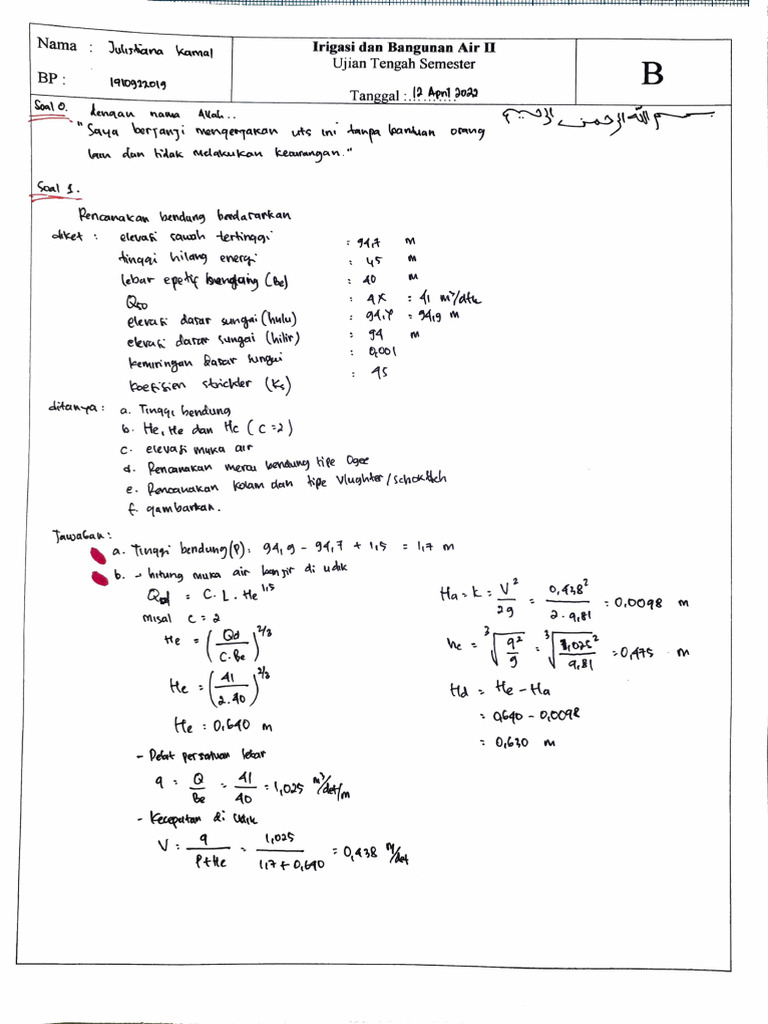 Nama : Julistiana Kamal
BP : 1910922019
Irigasi dan Bangunan Air II
Ujian Tengah Semester
Tanggal : 12 April 2022
B
Soal 0. dengan nama Allah..
بسم الله الرحمن الرحيم
"Saya berjanji mengerjakan uts ini tanpa bantuan orang
lain dan tidak melakukan kecurangan."
Soal 1.
Rencanakan bendung berdasarkan
diket : elevasi sawah tertinggi : 94,7 m
tinggi hilang energi : 45 m
lebar epetif (Be) : 40 m
Q50 : 4x = 41 m³/dtk
elevasi dasar sungai (hulu) : 94,y = 94,9 m
elevasi dasar sungai (hilir) : 94 m
kemiringan dasar sungai : 0,001
koefisien strickler (Ks) : 45
ditanya : a. Tinggi bendung
b. He, He dan Hc (C=2)
c. elevasi muka air
d. Rencanakan mercu bendung tipe Ogee
e. Rencanakan kolam dan tipe Vlughter/schoklitch
f. gambarkan.
Jawaban :
a. Tinggi bendung (P) : 94,9 - 94,7 + 1,5 = 1,7 m
b. → hitung muka air banjir di udik
Qd = C. L. He^1,5
misal C = 2
He = (Qd / C. Be)^2/3
He = (41 / 2. 40)^2/3
He = 0,640 m
- Debit persatuan lebar
q = Q / Be = 41 / 40 = 1,025 m³/det/m
- Kecepatan di Udik
V = q / P+He = 1,025 / 1,7 + 0,640 = 0,438 m/det
Ha = k = V² / 2g = 0,438² / 2. 9,81 = 0,0098 m
hc = ³√(q² / g) = ³√(1,025² / 9,81) = 0,475 m
Hd = He - Ha
= 0,640 - 0,0098
= 0,630 m